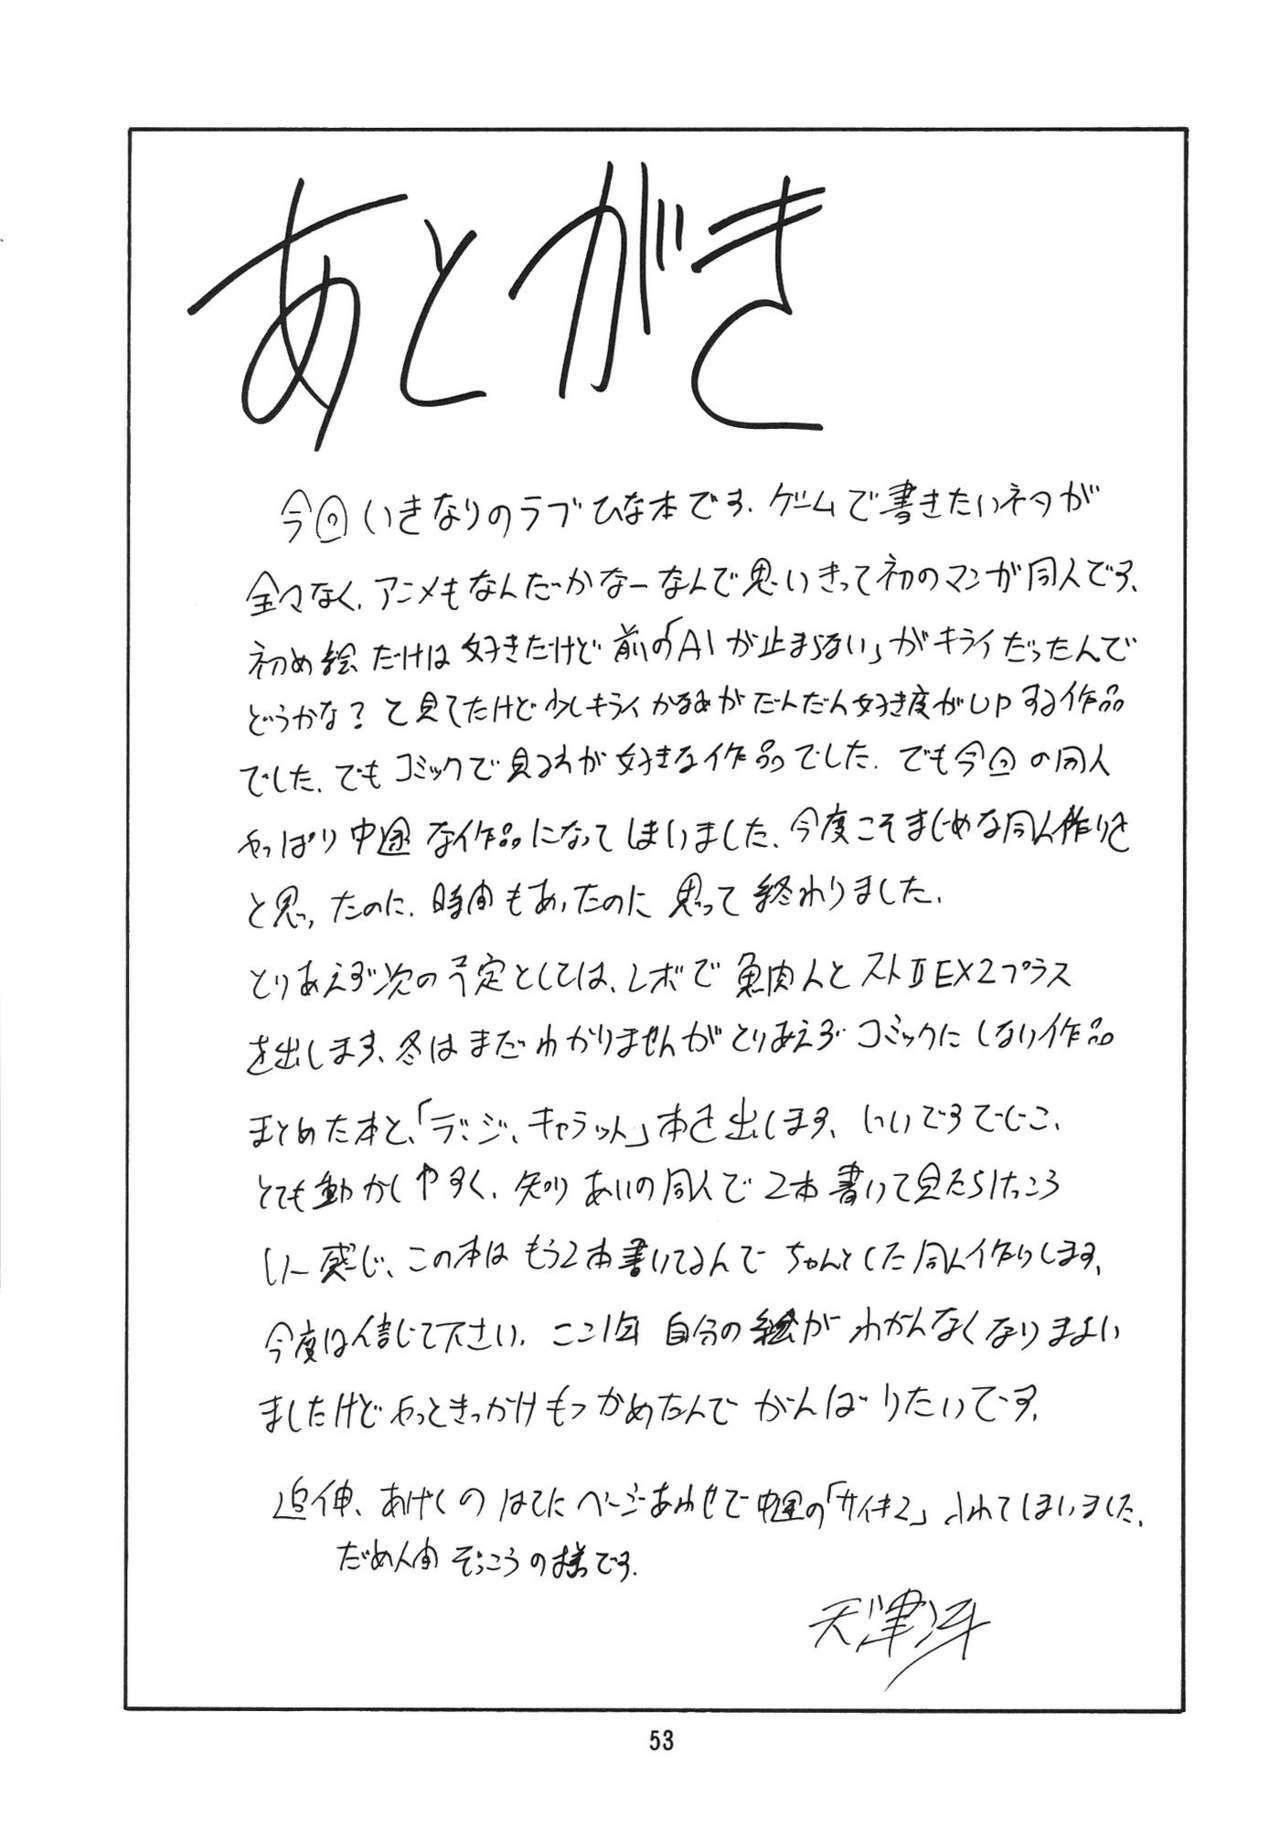 あとがき
今回いきなりのラブひな本です.ゲームで書きたいネタが
全々なく、アニメもなんだかなーなんで思いきって初のマンガ同人です、
初め絵だけは好きだけど前の「AIが止まらない」がキライだったんで
どうかな?と見てたけど少しキライかるみがだんだん好き度がUPする作品
でした.でもコミックで見るわが好きな作品でした.でも今回の同人
やっぱり中途な作品になってしまいました、今度こそまじめな同人作りを
と思ったのに.時間もあったのに思って終わりました.
とりあえず次の予定としては、レボで魚肉人とストⅡEX2プラス
を出します、冬はまだわかりませんがとりあえずコミックにしない作品
まとめた本と、「デ・ジ・キャラット」本を出します、いいですでじこ、
とても動かしやすく、知りあいの同人で2本書いて見たらけっこう
いー感じ、この本はもう2本書いてるんでちゃんとした同人作りします、
今度は信じて下さい.ここ1年自分の絵がわかんなくなりまよい
ましたけどやっときっかけもつかめたんでがんばりたいです.
追伸、あげくのはてにページあわせで中途の「サイキ2」入れてしまいました、
だめ人間ぞっこうの様です.
天津冴
53